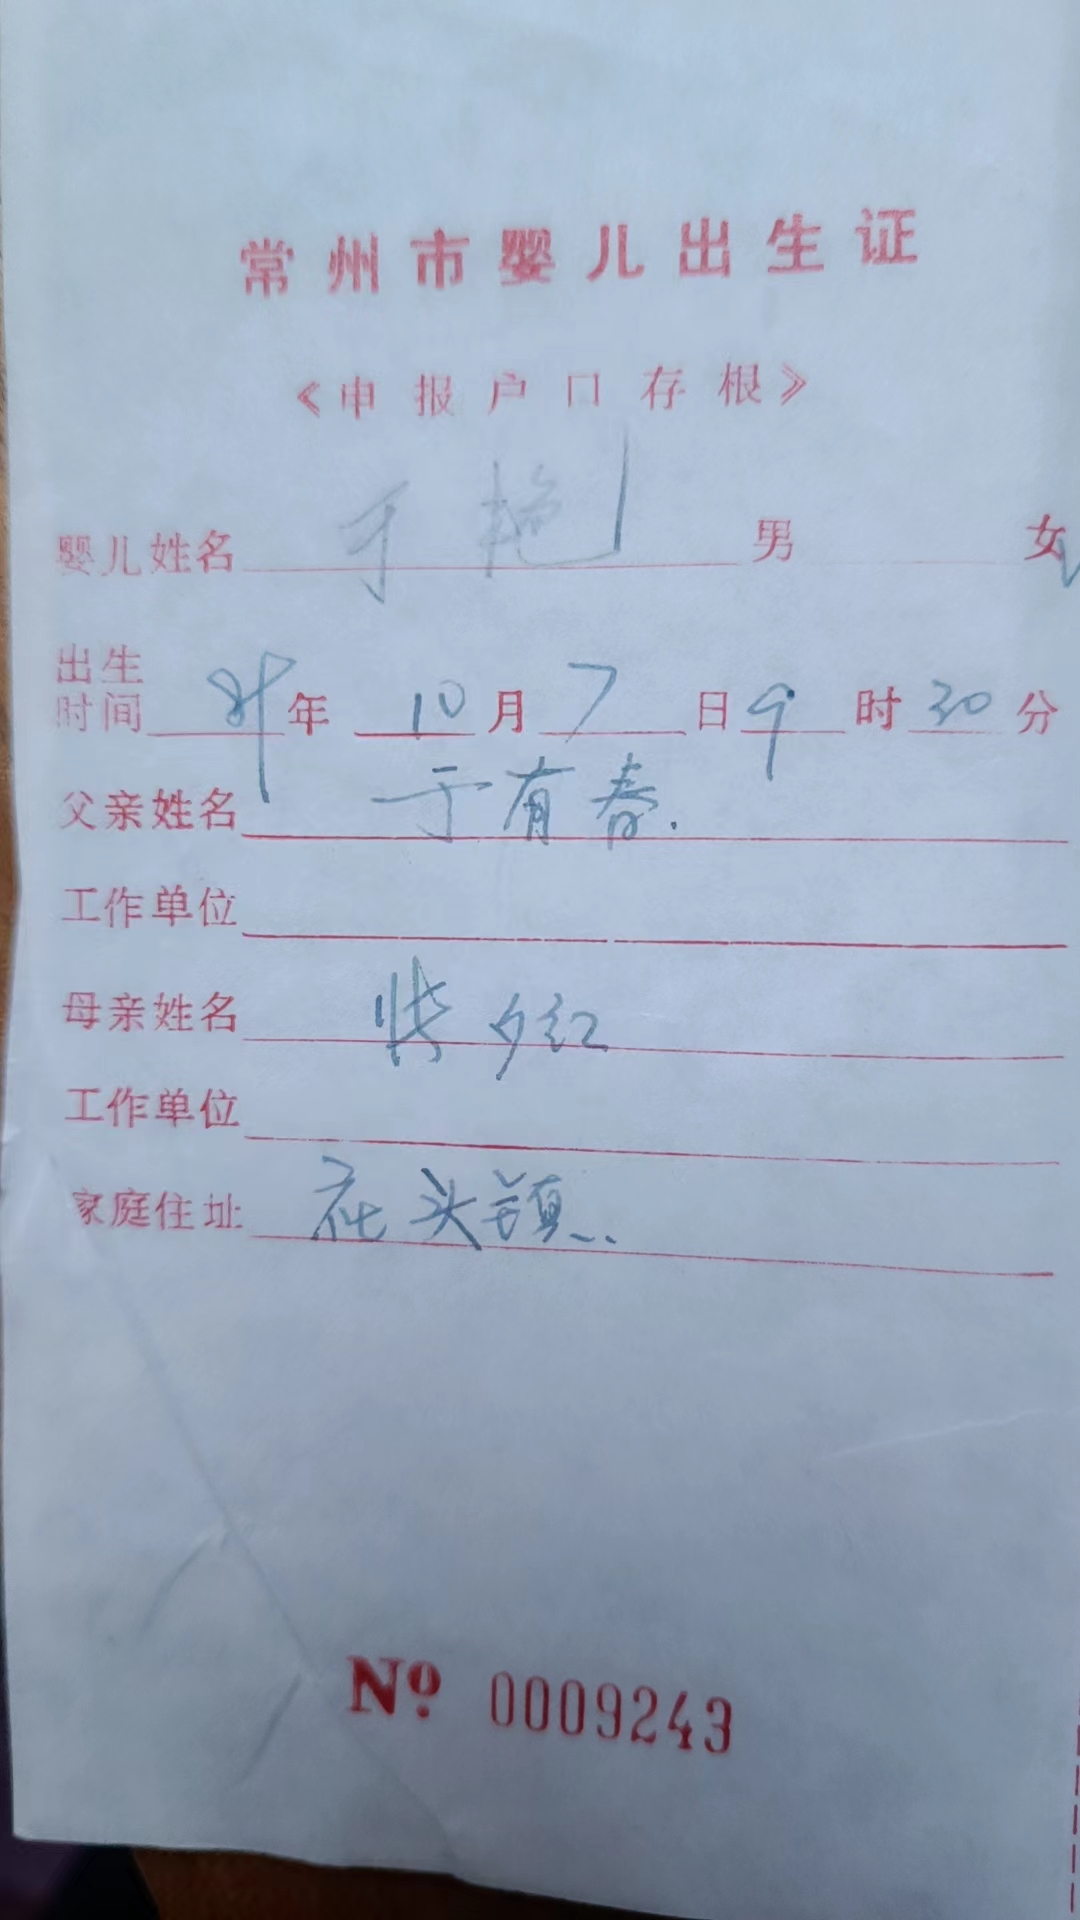 常州市婴儿出生证
《申报户口存根》
婴儿姓名 于艳 男 女
出生时间 年 10月7日9时30分
父亲姓名 于有春.
工作单位
母亲姓名 夕红
工作单位
家庭住址 社头镇
Nº 0009243